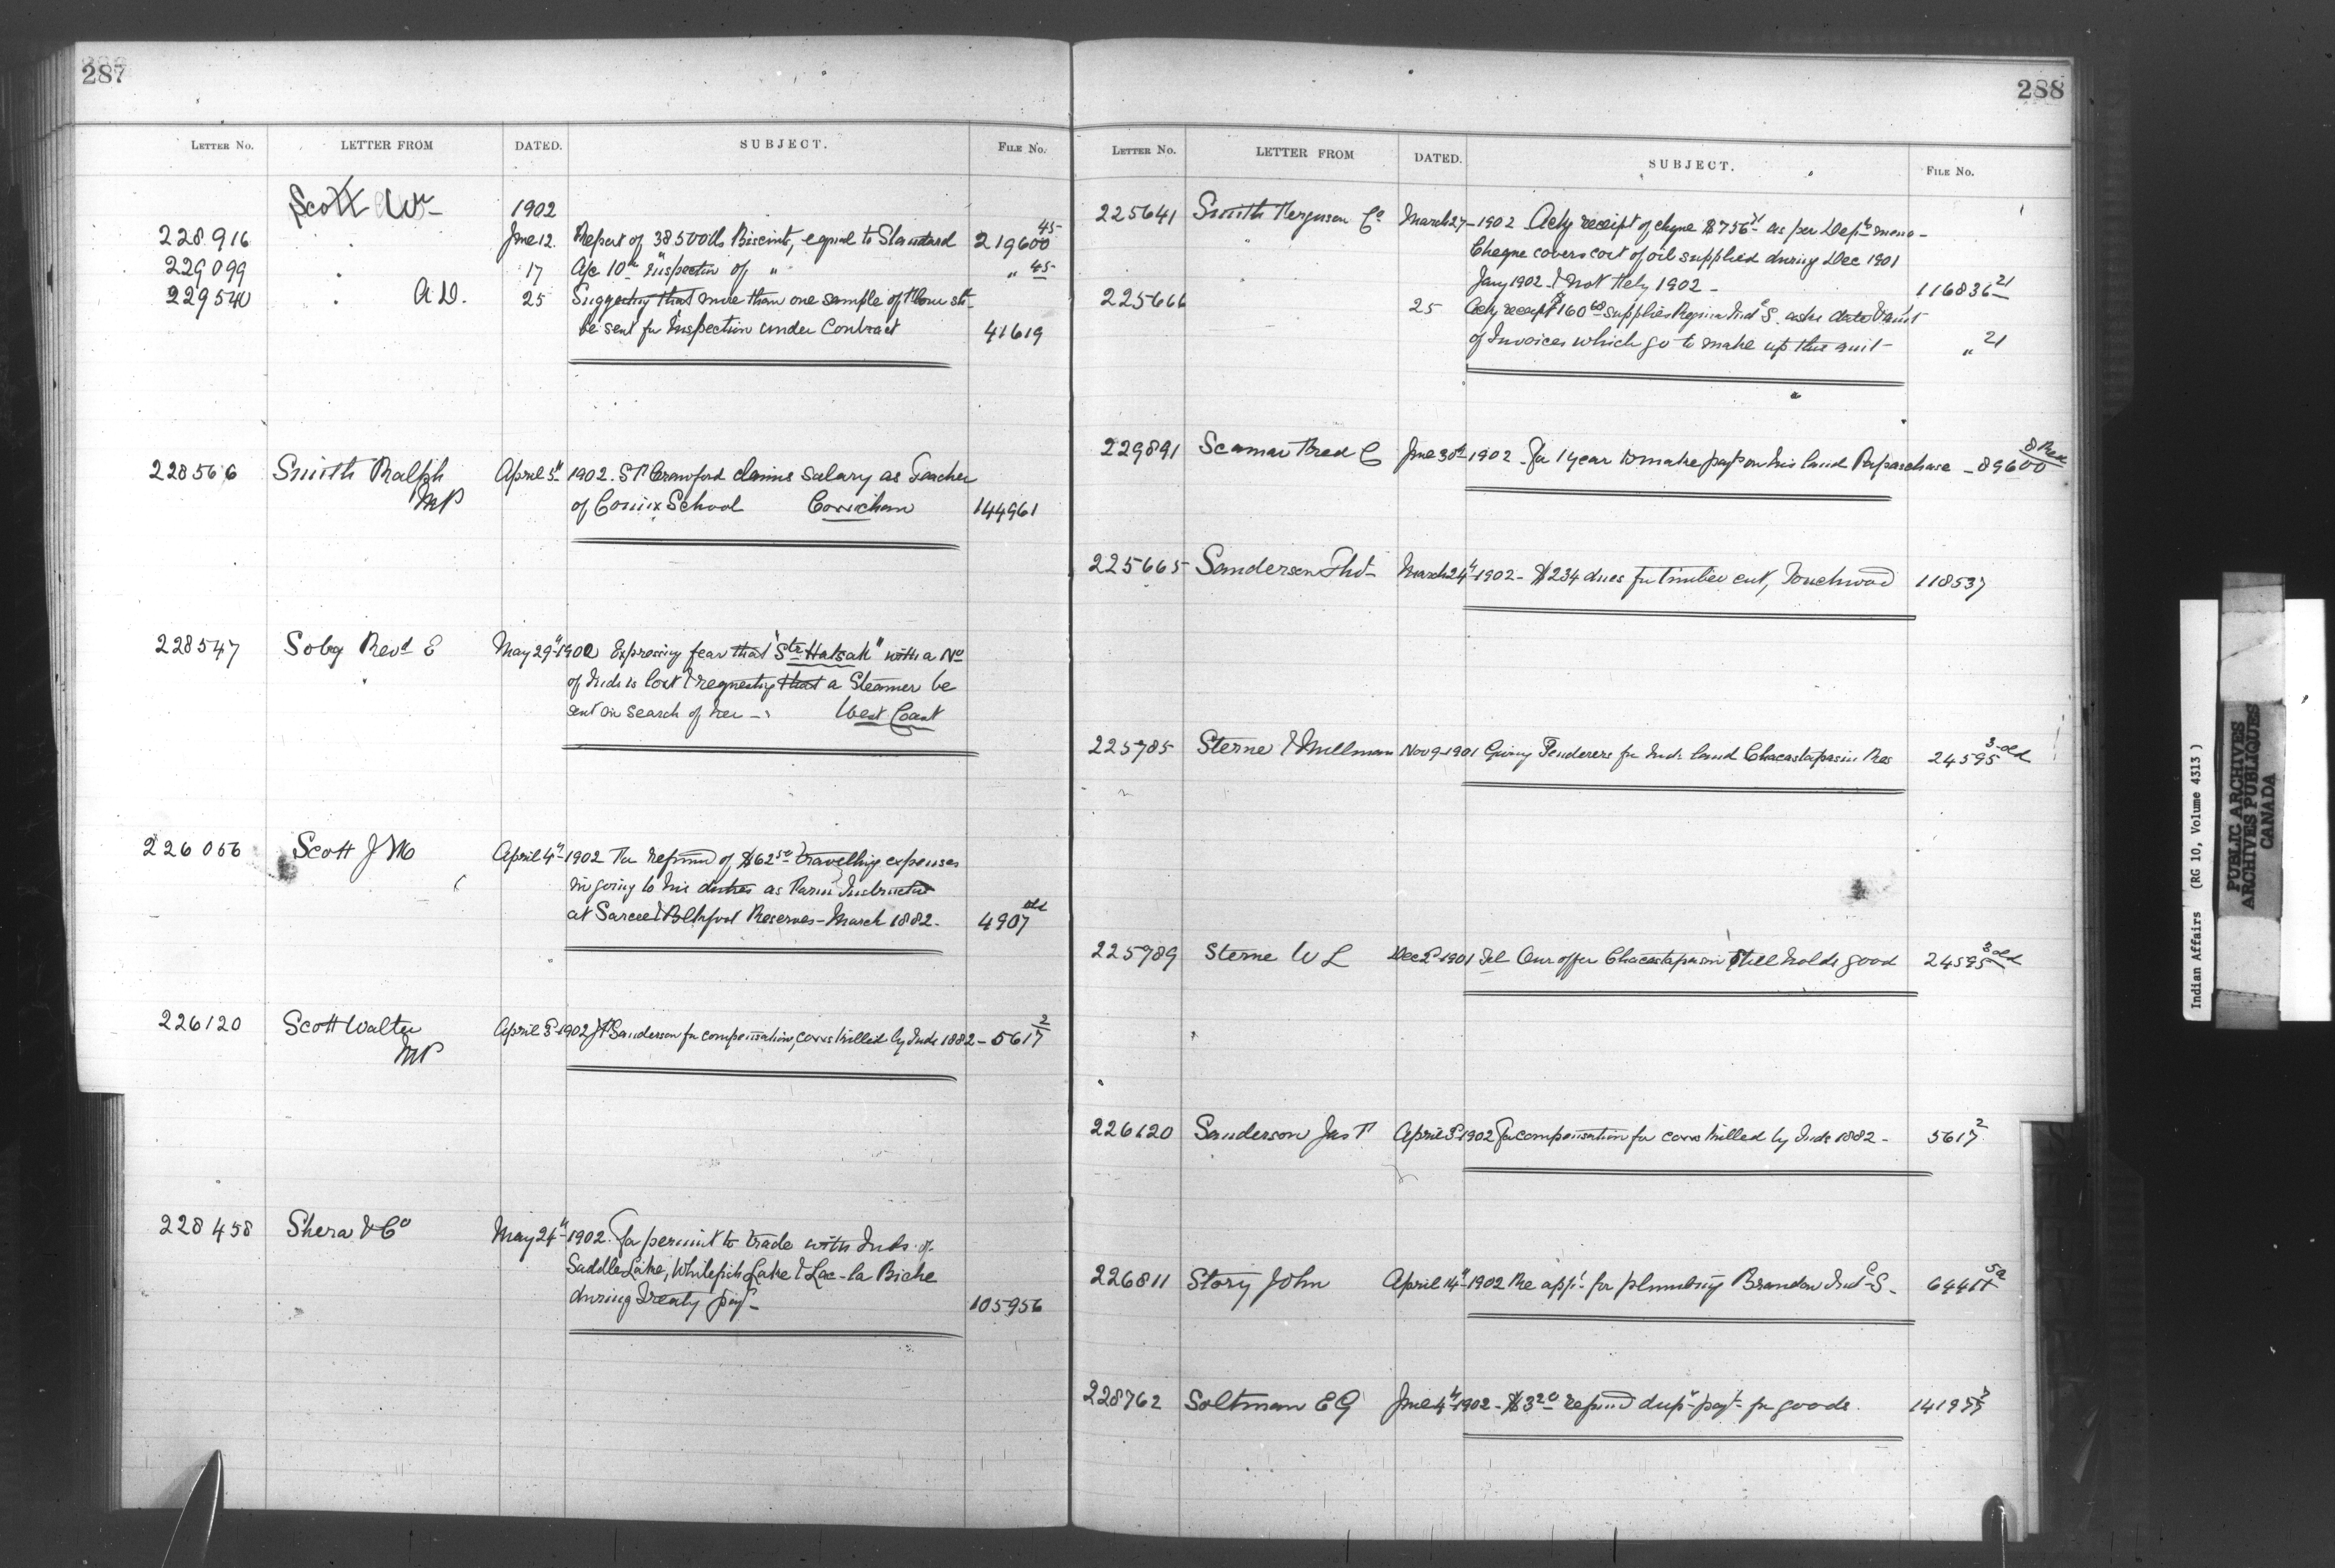 287
LETTER No. LETTER FROM DATED. SUBJECT. FILE No.
Scott Wm 1902
228916 " June 12. Report of 38500 lbs Biscuits, equal to Standard 219600 45
229099 " 17 A/c 10th Inspection of " " 45
229540 " A.D. 25 Suggesting that more than one sample of Flour shd
be sent for Inspection under Contract 41619
228566 Smith Ralph April 5th 1902. S F Crawford claims salary as Teacher
MP of School Cowichan 144961
228547 Soby Revd E May 29th 1902 Expressing fear that "Str Hatsak" with a No
of Inds is lost & requesting that a Steamer be
sent in search of her - West Coast
226056 Scott J M April 4th 1902 For refund of $62 50 travelling expenses
in going to his duties as Farm Instructor
at Sarcee & Blkfoot Reserves - March 1882. 4907 old
226120 Scott Walter April 3 1902 J F Sanderson for compensation, cows killed by Inds 1882 - 5617 2
MP
228458 Shera & Co May 24th 1902. For permit to trade with Inds of
Saddle Lake, Whitefish Lake & Lac-la Biche
during Treaty payt 105956
288
LETTER No. LETTER FROM DATED. SUBJECT. FILE No.
225641 Smith Ferguson Co March 27 - 1902 Ackg receipt of cheque $756 71 as per Depts memo -
Cheque covers cost of oil supplied during Dec 1901
Jany 1902. & not Feby 1902 - 116836 21
225666 25 Ackg receipt $160 68 supplies Regina Indl S. asks date & amt
of Invoices which go to make up this amt - " 21
229891 Seaman Fred C June 30th 1902 - For 1 year to make payt on his land Papaschase - 89600 8
225665 Sanderson Thos March 24th 1902 - $234 dues for timber cut, Touchwood 118537
225785 Sterne & Millman Nov 9 - 1901 Giving Tenderers for Inds land Chacastapasin Res 24595 3 old
225789 Sterne W L Dec 2 1901 Tel Our offer Chacastapasin still holds good 24595 3 old
226120 Sanderson Jas F April 3 1902 For compensation for cows killed by Inds 1882 - 5617 2
226811 Story John April 14th 1902 Re appt for plumbing Brandon Indl S.
228762 Soltman E G June 4th 1902 - $3 20 refund dup payt for goods.
Indian Affairs (RG 10, Volume 4313)
PUBLIC ARCHIVES
ARCHIVES PUBLIQUES
CANADA